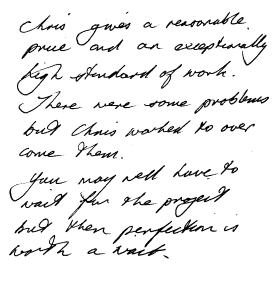 Chris gives a reasonable
price and an exceptionally
high standard of work.
There were some problems
but Chris worked to over
come them.
You may well have to
wait for the project
but then perfection is
worth a wait.